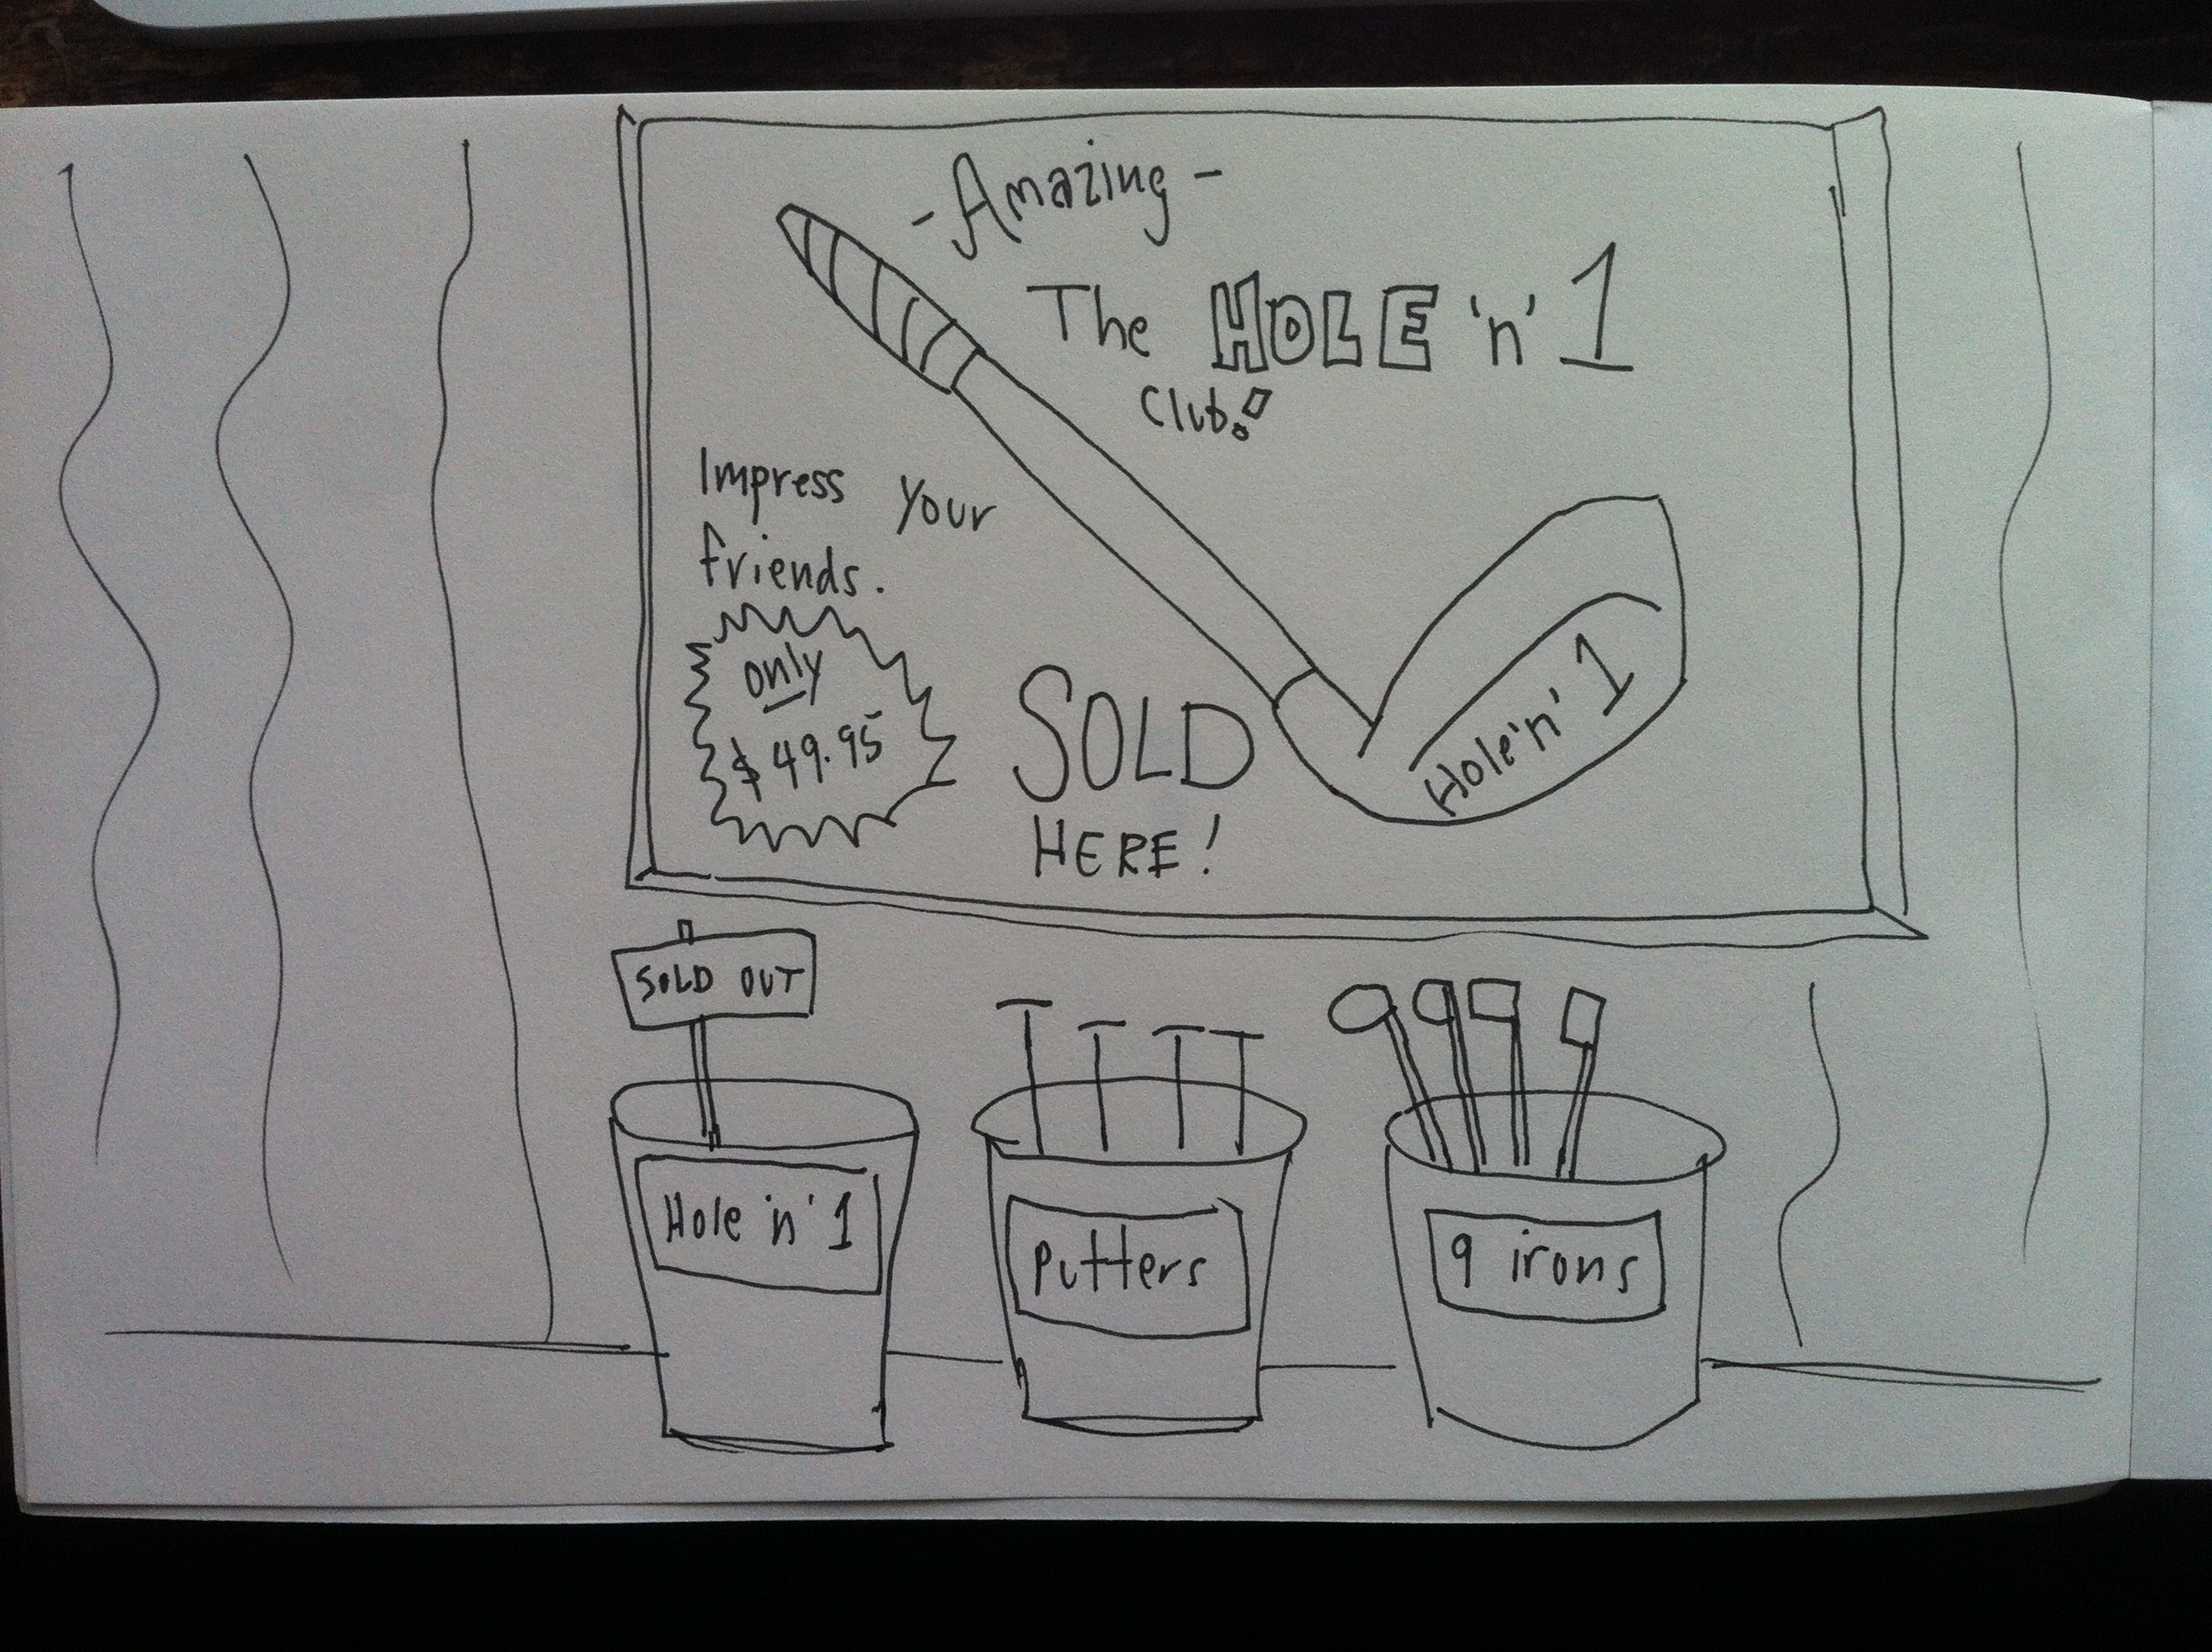 - Amazing -
The HOLE 'n' 1
Club!
Impress your
friends.
only
$49.95
SOLD
HERE!
Hole 'n' 1
SOLD OUT
Hole 'n' 1
Putters
9 irons